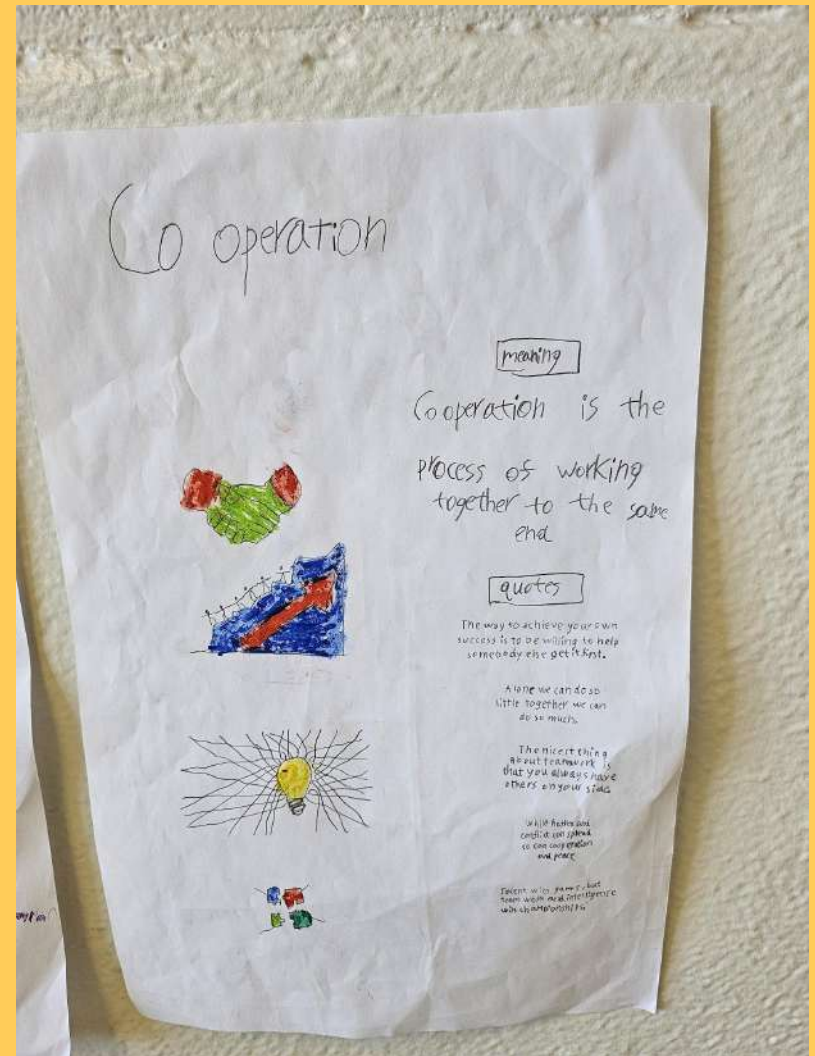 Co operation
meaning
Cooperation is the
process of working
together to the same
end
quotes
The way to achieve your own
success is to be willing to help
somebody else get it first.
Alone we can do so
little together we can
do so much.
The nicest thing
about teamwork is
that you always have
others on your side
While hatred and
conflict can spread
so can cooperation
and peace
Talent wins games, but
team work and intelligence
win championships